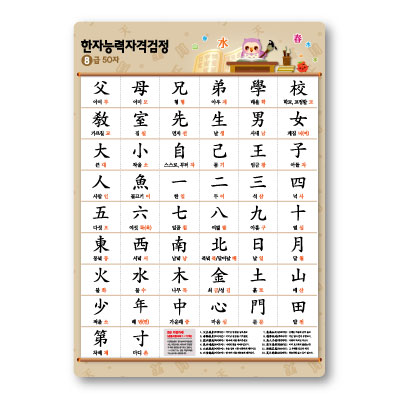 한자능력자격검정
8급 50자
水 春
父 母 兄 弟 學 校
아비 부 어미 모 형 형 아우 제 배울 학 학교, 교정할 교
敎 室 先 生 男 女
가르칠 교 집 실 먼저 선 날 생 사내 남 계집 녀(여)
大 小 自 己 王 子
큰 대 작을 소 스스로, 부터 자 몸 기 임금 왕 아들 자
人 魚 一 二 三 四
사람 인 물고기 어 한 일 두 이 석 삼 넉 사
五 六 七 八 九 十
다섯 오 여섯 륙(육) 일곱 칠 여덟 팔 아홉 구 열 십
東 西 南 北 日 月
동녘 동 서녘 서 남녘 남 북녘 북/달아날 배 날 일 달 월
火 水 木 金 土 山
불 화 물 수 나무 목 쇠 금/성 김 흙 토 메 산
少 年 中 心 門 田
적을 소 해 년(연) 가운데 중 마음 심 문 문 밭 전
第 寸
차례 제 마디 촌